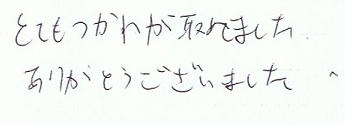 とてもつかれが取れてました
ありがとうございました